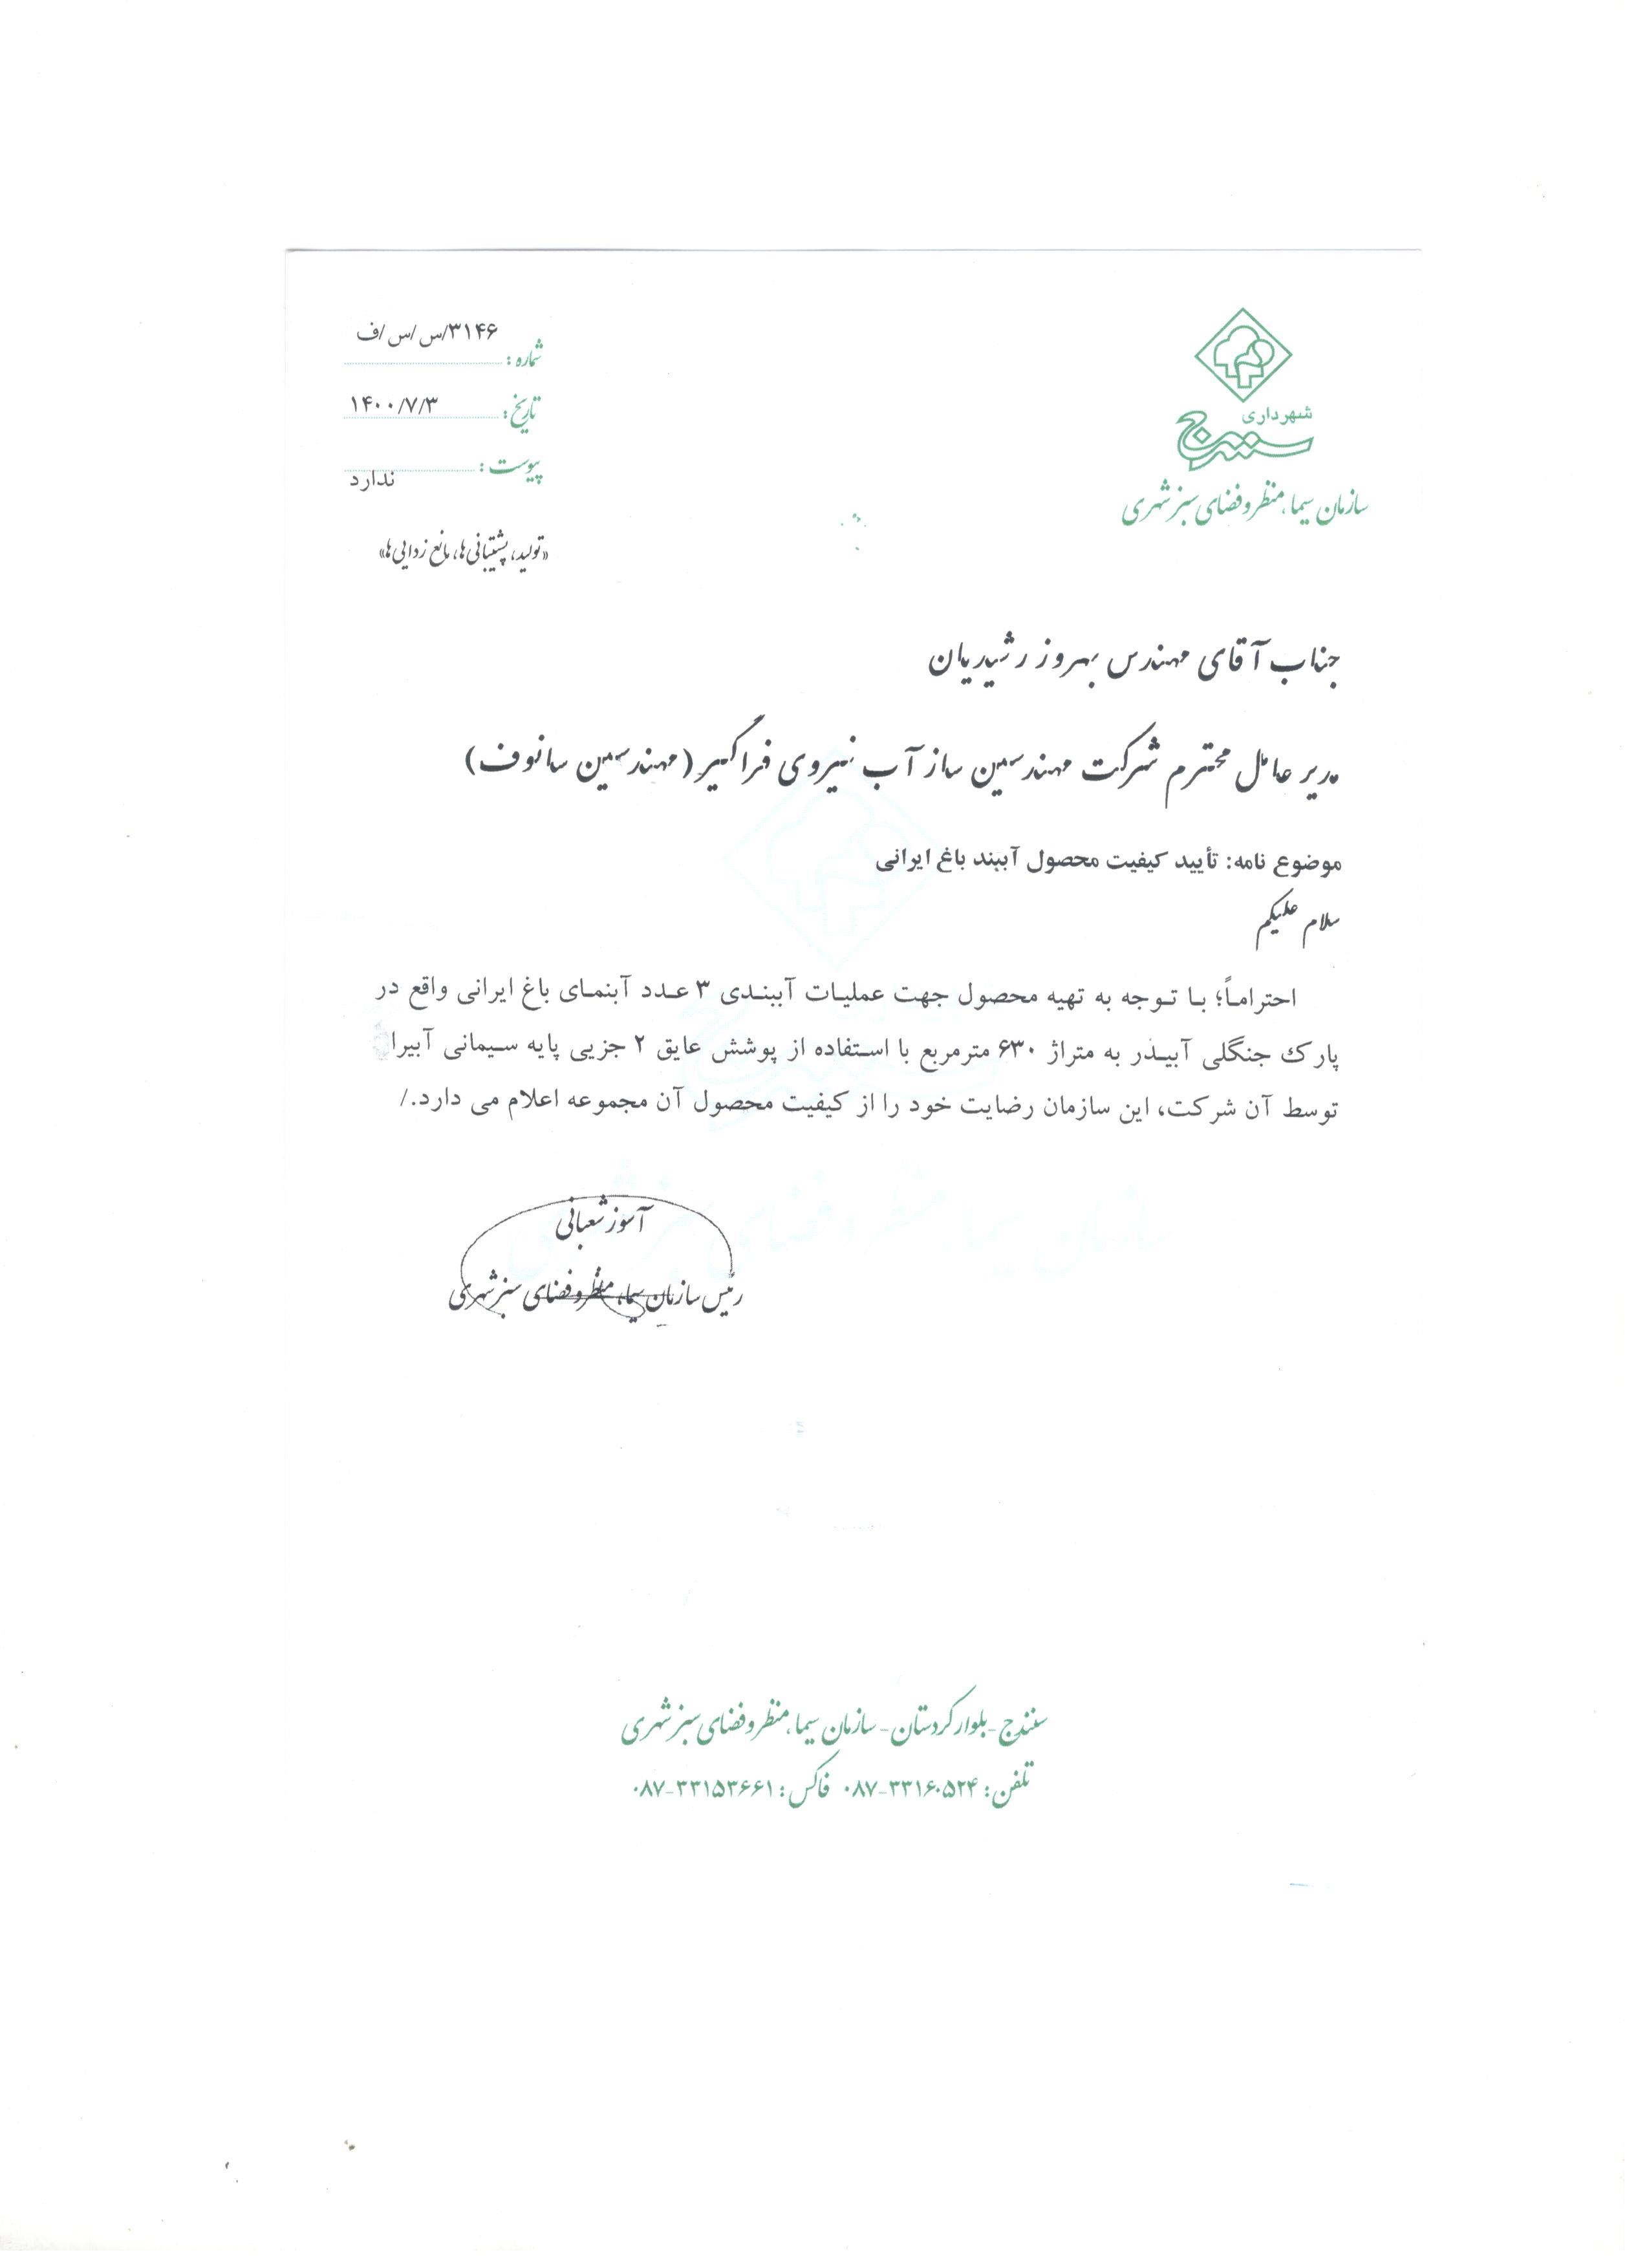 شهرداری
سنندج
سازمان سیما، منظر و فضای سبز شهری
شماره : ۳۱۴۶/س/س/ف
تاریخ : ۱۴۰۰/۷/۳
پیوست : ندارد
«تولید، پشتیبانی ها، مانع زدایی ها»
جناب آقای مهندس بهروز رشیدیان
مدیر عامل محترم شرکت مهندسین ساز آب نیروی فراگیر (مهندسین سانوف)
موضوع نامه: تأیید کیفیت محصول آببند باغ ایرانی
سلام علیکم
احتراماً؛ با توجه به تهیه محصول جهت عملیات آببندی ۳ عدد آبنمای باغ ایرانی واقع در
پارک جنگلی آبیدر به متراژ ۶۳۰ مترمربع با استفاده از پوشش عایق ۲ جزیی پایه سیمانی آبیرا
توسط آن شرکت، این سازمان رضایت خود را از کیفیت محصول آن مجموعه اعلام می دارد./
آسوز شعبانی
رئیس سازمان سیما، منظر و فضای سبز شهری
سنندج - بلوار کردستان - سازمان سیما، منظر و فضای سبز شهری
تلفن : ۰۸۷-۳۳۱۶۰۵۲۴ فاکس : ۰۸۷-۳۳۱۵۳۶۶۱